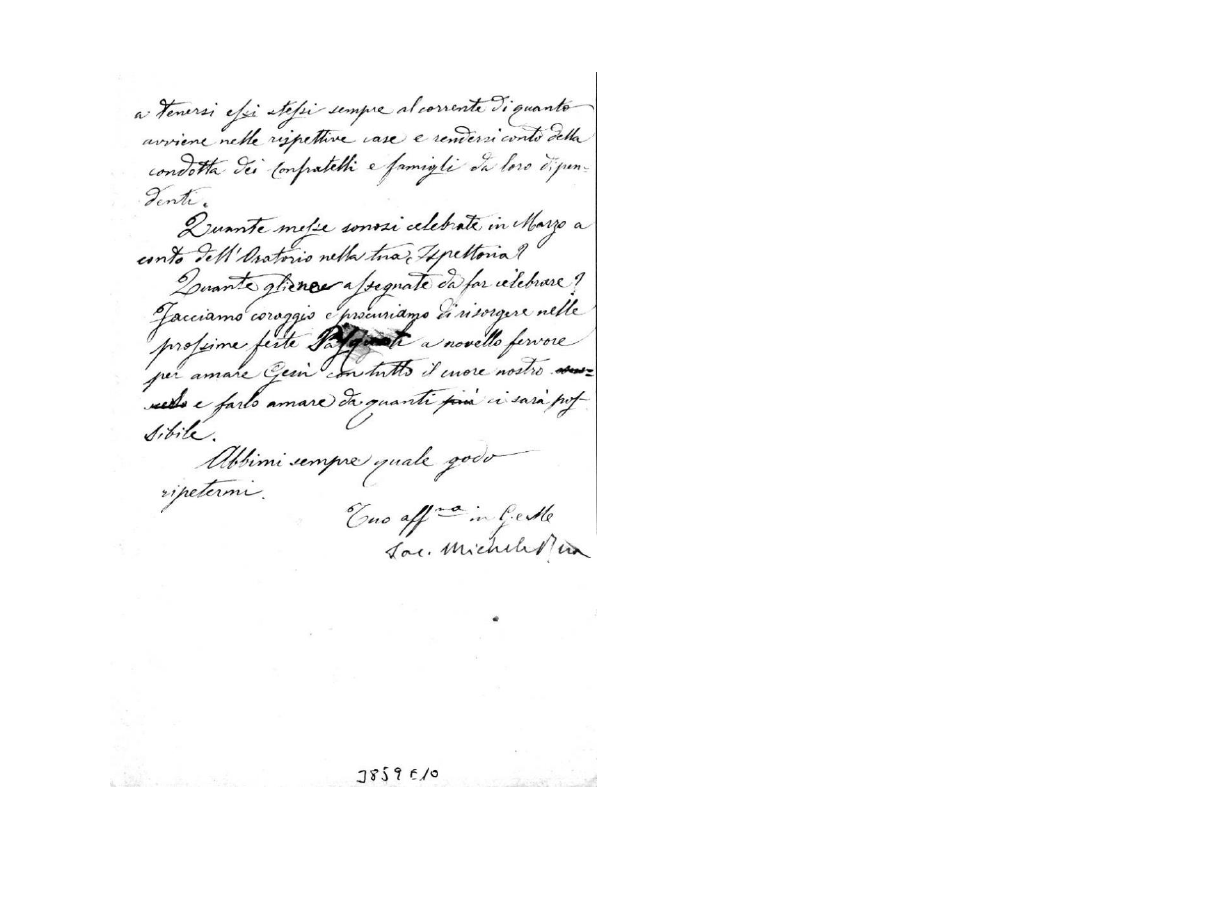 a tenersi essi stessi sempre al corrente di quanto
avviene nelle rispettive case e rendersi conto della
condotta dei Confratelli e famigli da loro dipen-
denti.
Quante messe sonosi celebrate in Marzo a
conto dell'Oratorio nella tua Ispettoria?
Quante gliene assegnate da far celebrare?
Facciamo coraggio e procuriamo di risorgere nelle
prossime feste Pasquali a novello fervore
per amare Gesù con tutto il cuore nostro
e farlo amare da quanti più ci sarà pos-
sibile.
Abbimi sempre quale godo
ripetermi.
Tuo aff.mo in G. e M.
Sac. Michele Rua
3859 E10